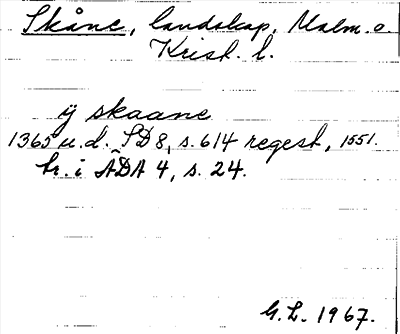 Skåne, landskap, Malm. o.
Krist. l.
ÿ skaane
1365 u.d. SD 8, s. 614 regest, 1551.
tr. i ÄDA 4, s. 24.
G.L. 1967.